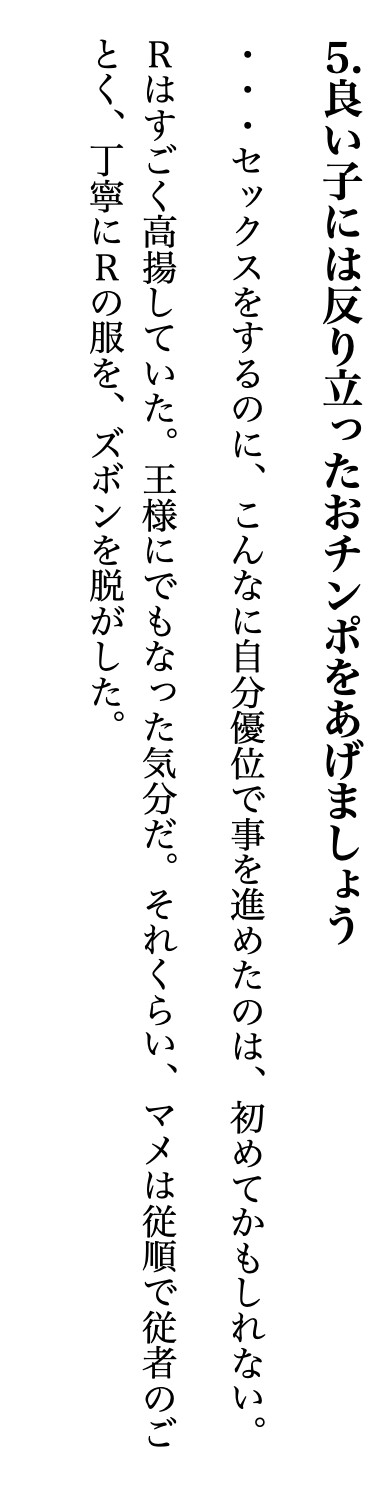 5.良い子には反り立ったおチンポをあげましょう
・・・セックスをするのに、こんなに自分優位で事を進めたのは、初めてかもしれない。
Rはすごく高揚していた。王様にでもなった気分だ。それくらい、マメは従順で従者のご
とく、丁寧にRの服を、ズボンを脱がした。